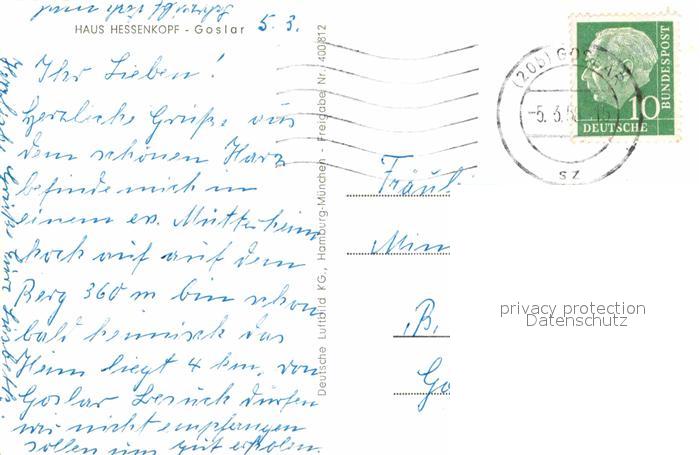 HAUS HESSENKOPF - Goslar 5.3.
Ihr Lieben!
Herzliche Grüße aus
dem schönen Harz
befinde mich in
einem ev. Mütterheim
hoch auf auf dem
Berg 360 m bin schon
bald heimisch das
Heim liegt 4 km. von
Goslar Besuch dürfen
wir nicht empfangen
sollen uns gut erholen.
Deutsche Luftbild KG., Hamburg-München - Freigabe Nr. 400812
DEUTSCHE BUNDESPOST
10
(20b) GOSLAR
-5.3.5
sz
Fräul
Min
B.
Go
privacy protection
Datenschutz